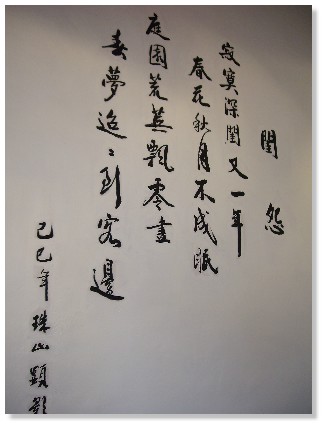 閨怨
寂寞深閨又一年
春花秋月不成眠
庭園荒蕪飄零盡
春夢迢〻到客邊
己巳年珠山顥影